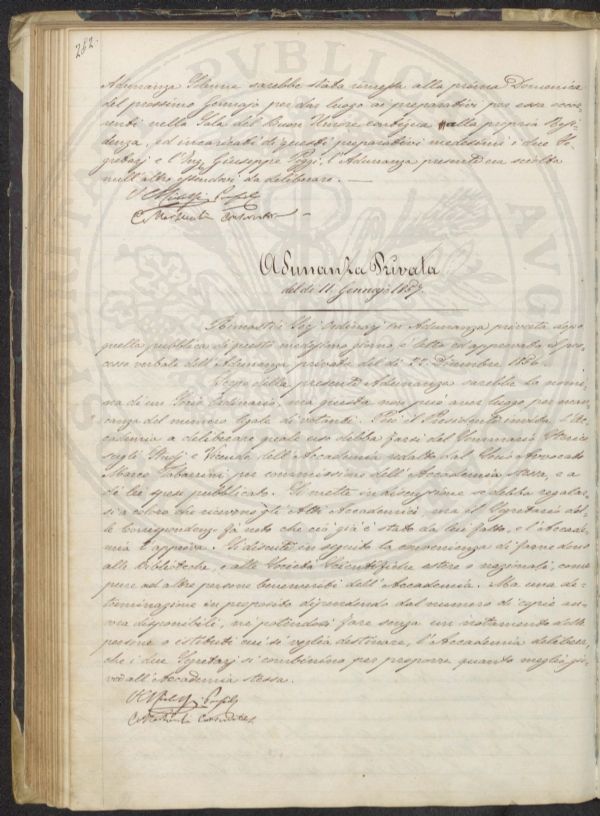 282.
Adunanza Solenne sarebbe stata rimessa alla prima Domenica
del prossimo Gennajo per dar luogo ai preparativi per essa occor-
renti nella Sala del Buon Umore contigua alla propria Resi-
denza, ed incaricati di questi preparativi medesimi i due Se-
gretarj e l'Ing. Giuseppe Poggi, l'Adunanza presente era sciolta
null'altro essendovi da deliberare.
Adunanza Privata
del dì 11. Gennajo 1857.
Rimasti i Socj Ordinarj in Adunanza privata dopo
quella pubblica di questo medesimo giorno, è letto ed approvato il pro-
cesso verbale dell'Adunanza privata del dì Dicembre 1856.
Scopo della presente Adunanza sarebbe la nomi-
na di un Socio Ordinario, ma questa non può aver luogo per man-
canza del numero legale di votanti. Più il Presidente invita l'Ac-
cademia a deliberare quale uso debba farsi del Sommario Storico
sugli Studj e Vicende dell'Accademia redatto dal Socio Avvocato
Marco Tabarrini per commissione dell'Accademia stessa, e a
di lei spese pubblicato. Si mette in discussione se debba regalar-
si a coloro che ricevono gli Atti Accademici ma il Segretario del-
le Corrispondenze fa noto che ciò già è stato da lui fatto, e l'Accade-
mia l'approva. Si discute in seguito la convenienza di farne dono
alle biblioteche, e alle Società Scientifiche estere o nazionali, come
pure ad altre persone benemerite dell'Accademia. Ma una de-
terminazione in proposito dipendendo dal numero di copie an-
cora disponibili, nè potendosi fare senza un notamento delle
persone o istituti cui si voglia destinare, l'Accademia delibera,
che i due Segretarj si combinino per proporre quanto meglio gio-
vi all'Accademia stessa.